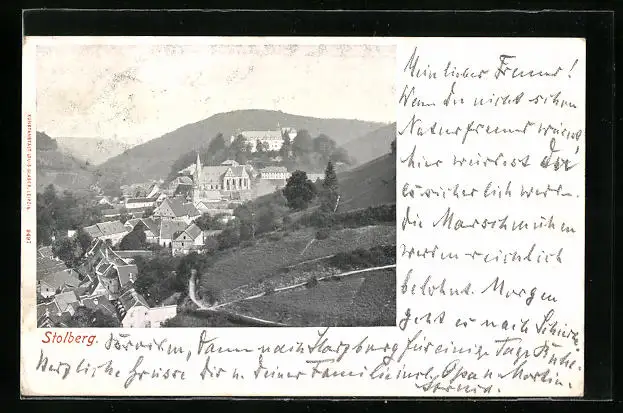 Mein lieber Freund!
Wenn Du nicht schon
Naturfreund wärst,
hier würdest Du
es sicherlich werd-
Die Marschmühen
werden reichlich
belohnt. Morgen
geht es nach Schier-
Stolberg. Dann nach Harzburg für einige Tage Ruhe.
Herzliche Grüsse Dir u. Deiner Familie
KUNSTANSTALT LOUIS GLASER, LEIPZIG